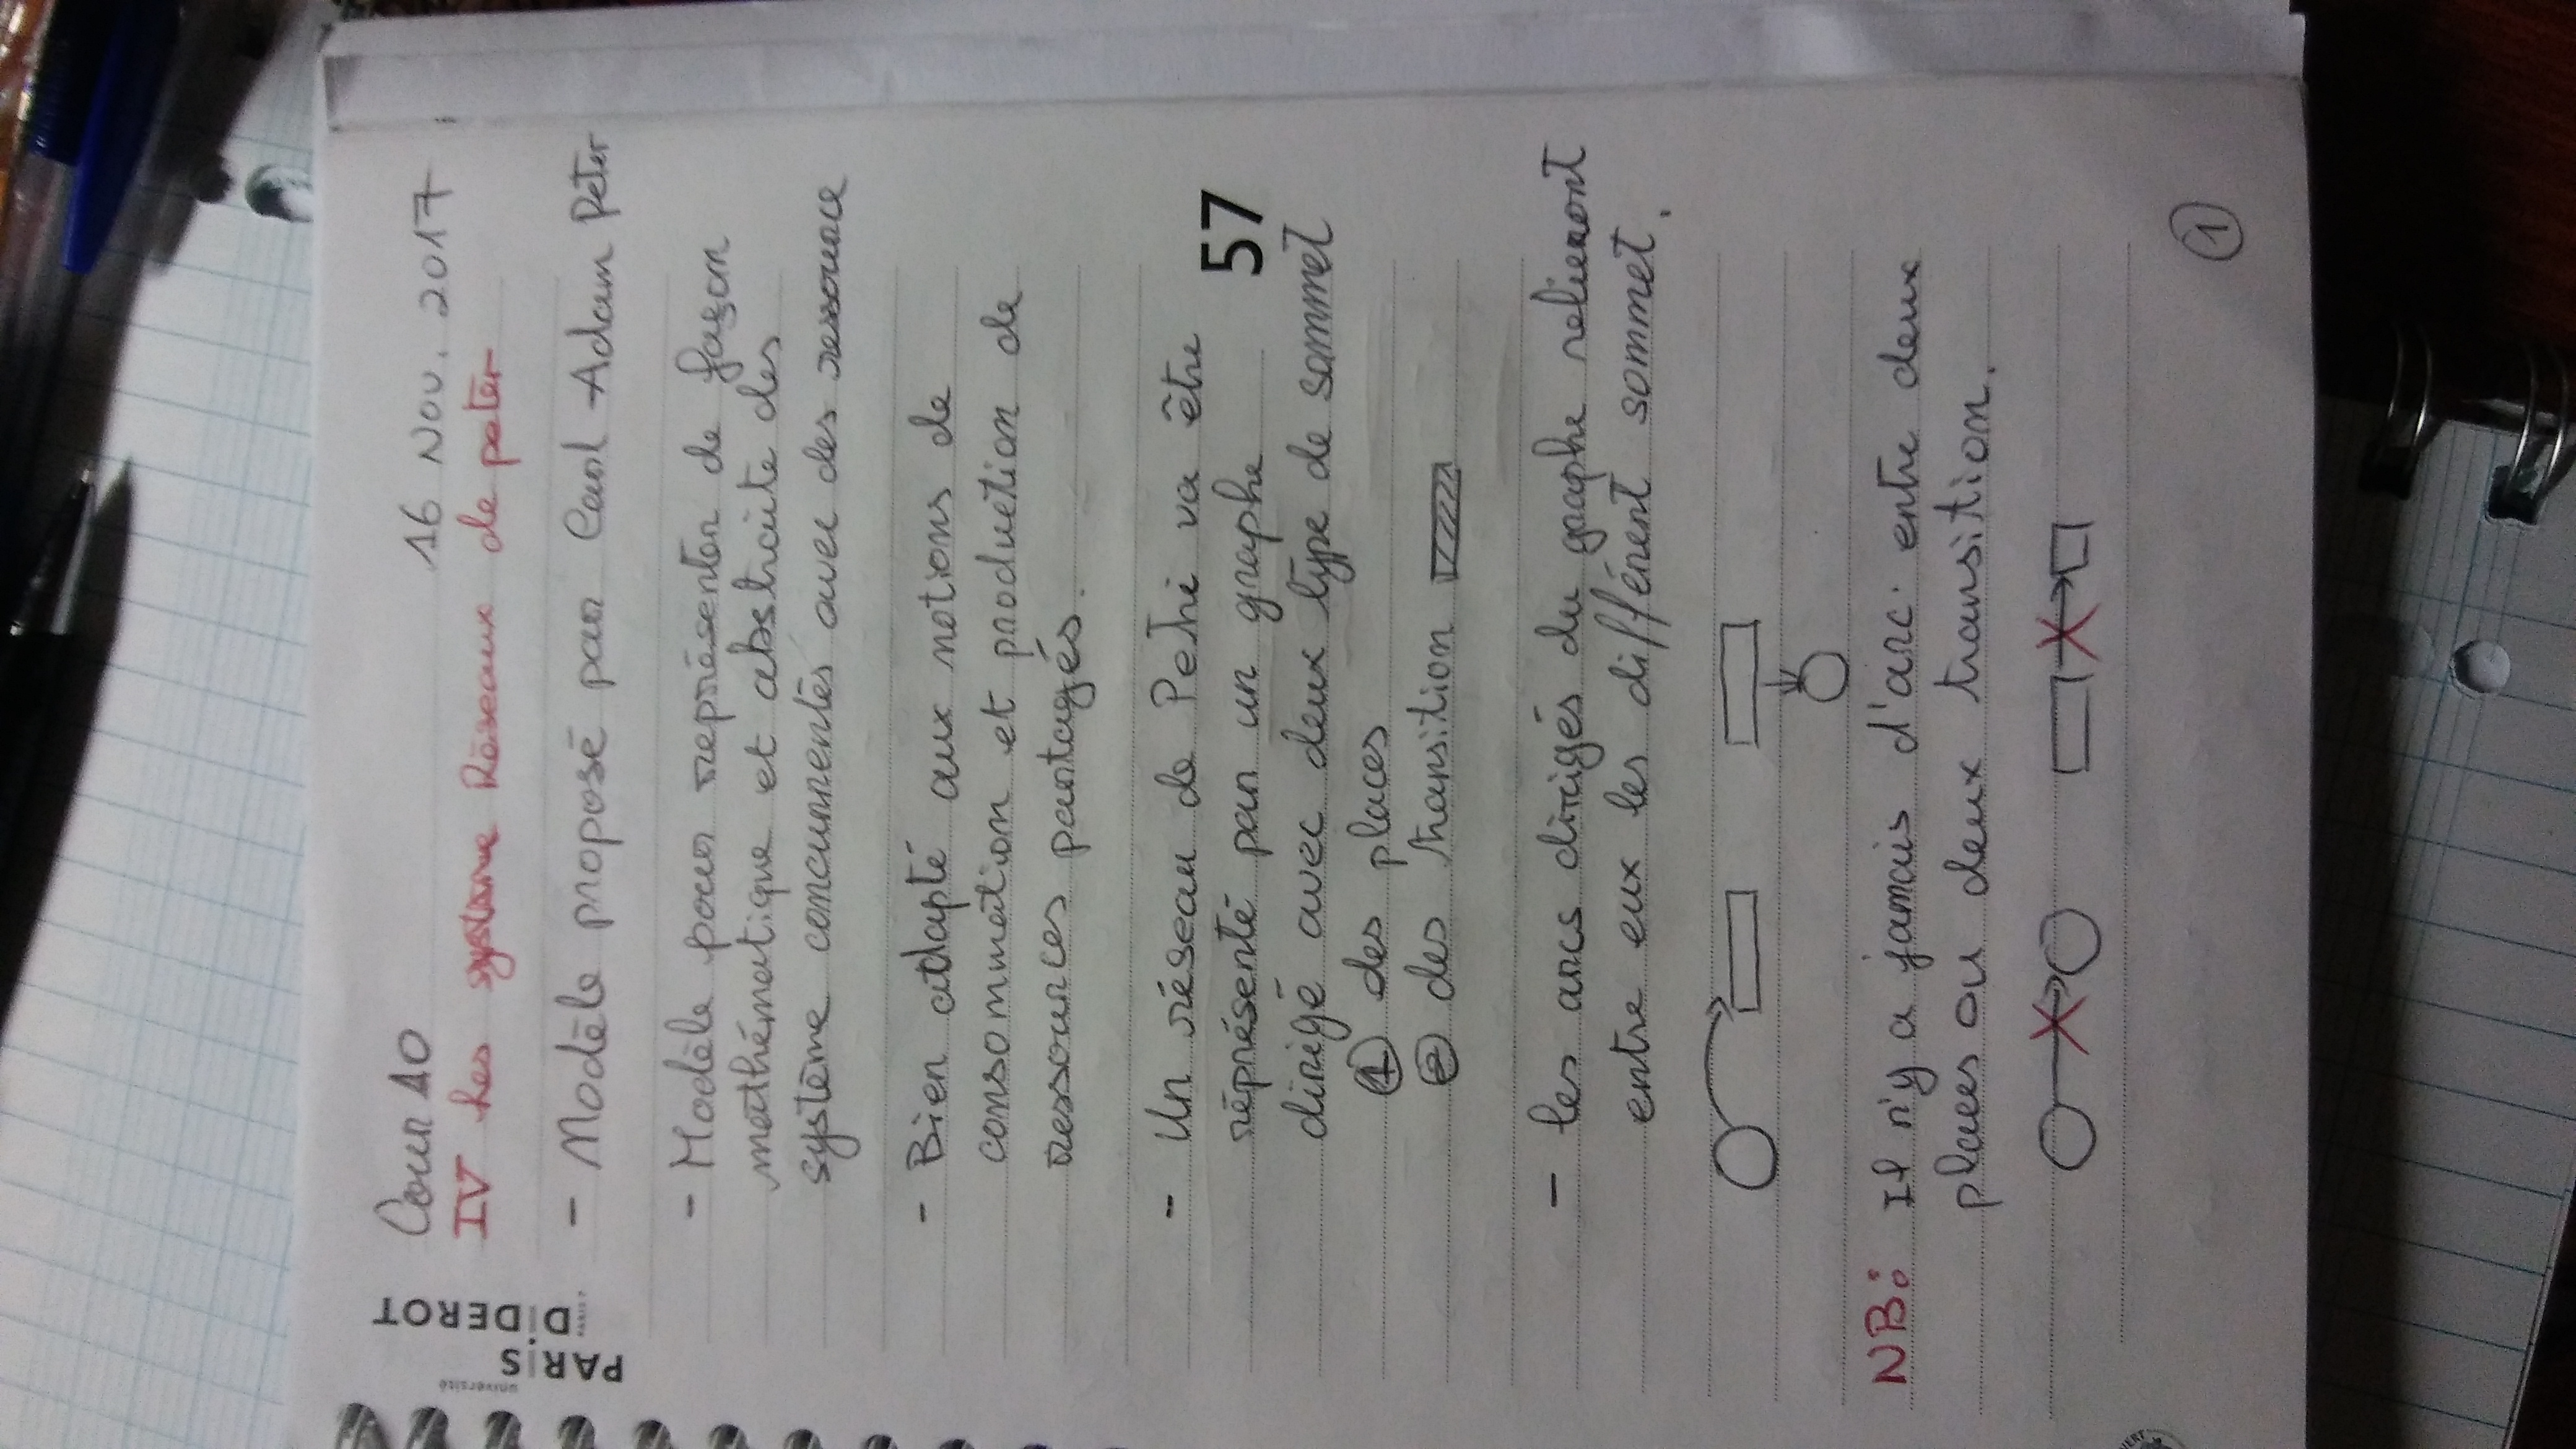 université
PARIS
DIDEROT
PARIS 7
Cour 10
16 Nov. 2017
IV Les système Réseaux de peter
- Modèle proposé par Carl Adam Peter
- Modèle pour représenter de façon
mathématique et abstraite des
système concurrentés avec des ressource
- Bien adapté aux notions de
consommation et production de
ressources partagés.
- Un réseau de Petri va être
réprésenté par un graphe
dirigé avec deux type de sommet
57
① des places
② des transition
- les arcs dirigés du graphe relieront
entre eux les différent sommet.
NB: Il n'y a jamais d'arc entre deux
places ou deux transition.
①